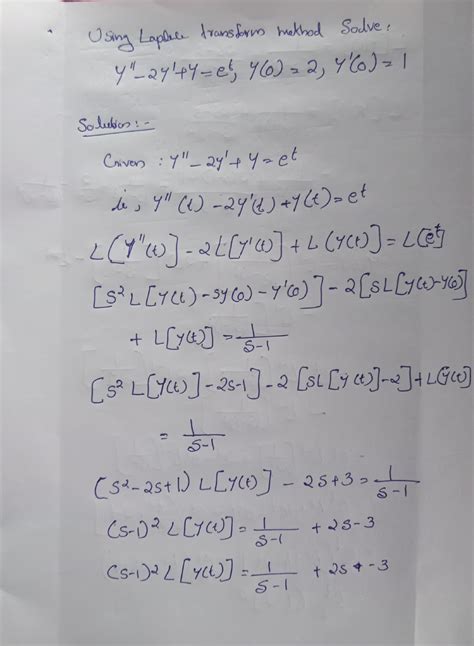 Using Laplace transform method Solve:
y''-2y'+y=e^t, y(0)=2, y'(0)=1
Solution:-
Given: y''-2y'+y=e^t
ie, y''(t)-2y'(t)+y(t)=e^t
L[y''(t)]-2L[y'(t)]+L[y(t)]=L[e^t]
[s²L[y(t)-sy(0)-y'(0)]-2[sL[y(t)-y(0)]
+L[y(t)]=1/(s-1)
[s²L[y(t)]-2s-1]-2[sL[y(t)]-2]+L[y(t)]
=1/(s-1)
(s²-2s+1)L[y(t)]-2s+3=1/(s-1)
(s-1)²L[y(t)]=1/(s-1)+2s-3
(s-1)²L[y(t)]=1/(s-1)+2s-3